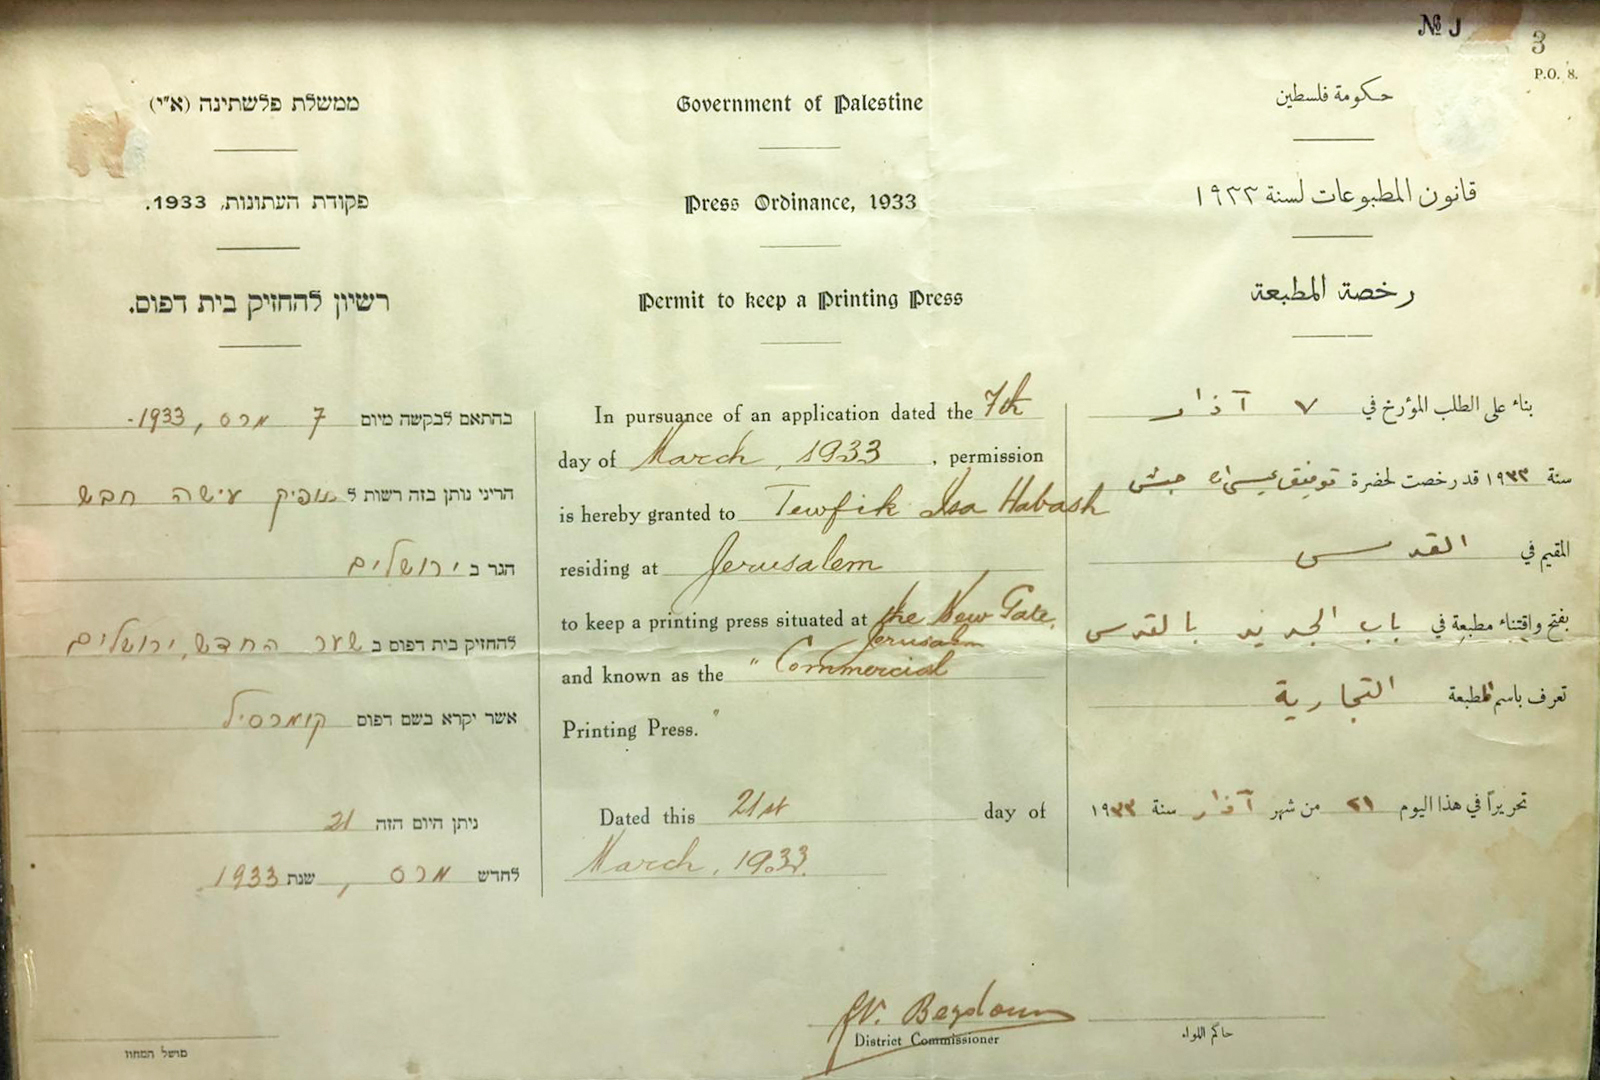 № J
3
P.O. 8.
ממשלת פלשתינה (א״י)
פקודת העתונות, 1933.
רשיון להחזיק בית דפוס.
בהתאם לבקשה מיום 7 מרס, 1933-
הריני נותן בזה רשות ל תופיק עישה חבש
הגר ב ירושלים
להחזיק בית דפוס ב שער החדש, ירושלים
אשר יקרא בשם דפוס קומרסיל
ניתן היום הזה 21
לחדש מרס, שנת 1933
מושל המחוז
Government of Palestine
Press Ordinance, 1933
Permit to keep a Printing Press
In pursuance of an application dated the 7th
day of March, 1933, permission
is hereby granted to Tewfik Isa Habash
residing at Jerusalem
to keep a printing press situated at the New Gate,
Jerusalem
and known as the "Commercial
Printing Press."
Dated this 21st day of
March, 1933.
District Commissioner
حكومة فلسطين
قانون المطبوعات لسنة ١٩٣٣
رخصة المطبعة
بناء على الطلب المؤرخ في ٧ آذار
سنة ١٩٣٣ قد رخصت لحضرة توفيق عيسى حبش
المقيم في القدس
بفتح واقتناء مطبعة في باب الجديد بالقدس
تعرف باسم المطبعة التجارية
تحريراً في هذا اليوم ٢١ من شهر آذار سنة ١٩٣٣
حاكم اللواء